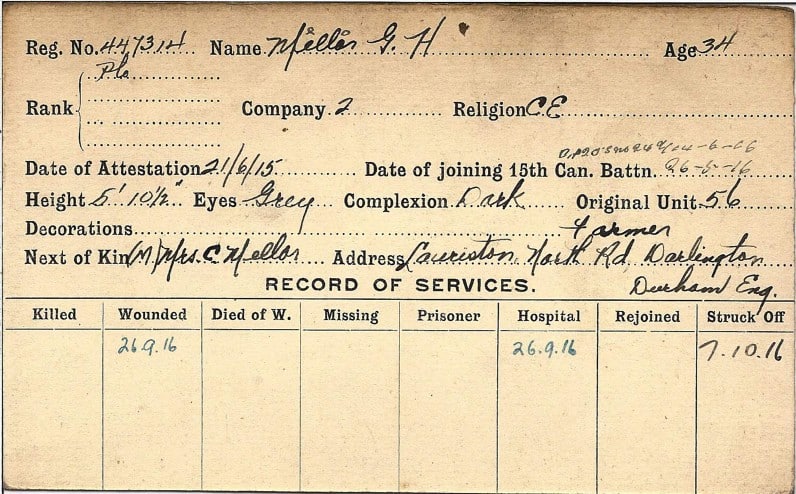 Reg. No. 447314 Name Mellor G. H Age 34
Pte
Rank Company 2 Religion C.E
Date of Attestation 21/6/15 Date of joining 15th Can. Battn. 26-5-16
Height 5' 10½" Eyes Grey Complexion Dark Original Unit 56
Decorations Farmer
Next of Kin (M) Mrs. C Mellor Address Lauriston North Rd, Darlington
RECORD OF SERVICES. Durham Eng.
Killed Wounded Died of W. Missing Prisoner Hospital Rejoined Struck Off
26.9.16 26.9.16 7.10.16